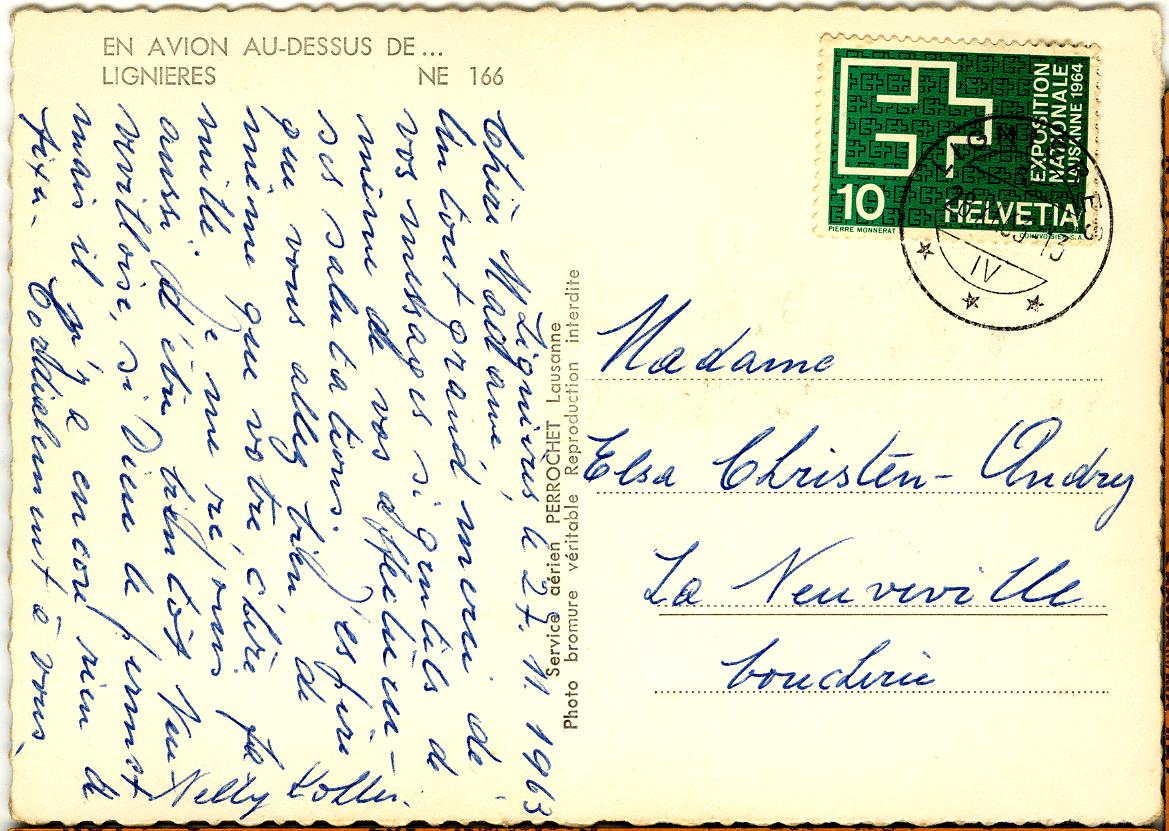 EN AVION AU-DESSUS DE ...
LIGNIERES NE 166
Lignières, le 27. 11. 1963
Chère Madame,
Un tout grand merci de
vos messages si gentils d
même de vos affectueu-
ses salutations. J'espère
que vous allez bien, de
même que votre chère fa-
mille. Je me réjouis
aussi d'être bientôt Neu-
vevilloise, si Dieu le permet
mais il n'y a encore rien d
fixé. Cordialement à vous,
Nelly Koller.
Service aérien PERROCHET Lausanne
Photo bromure véritable Reproduction interdite
EXPOSITION
NATIONALE
LAUSANNE 1964
10
HELVETIA
PIERRE MONNERAT
COURVOISIER S.A.
LIGNIERES
IV
Madame
Elsa Christen-Andrey
La Neuveville
boucherie